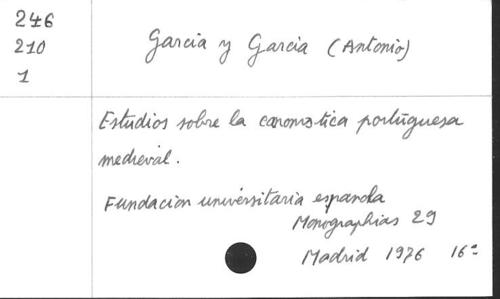 246
210
1
Garcia y Garcia (Antonio)
Estudios sobre la canonistica portuguesa
medieval.
Fundacion universitaria espanola
Monographias 29
Madrid 1976 16°